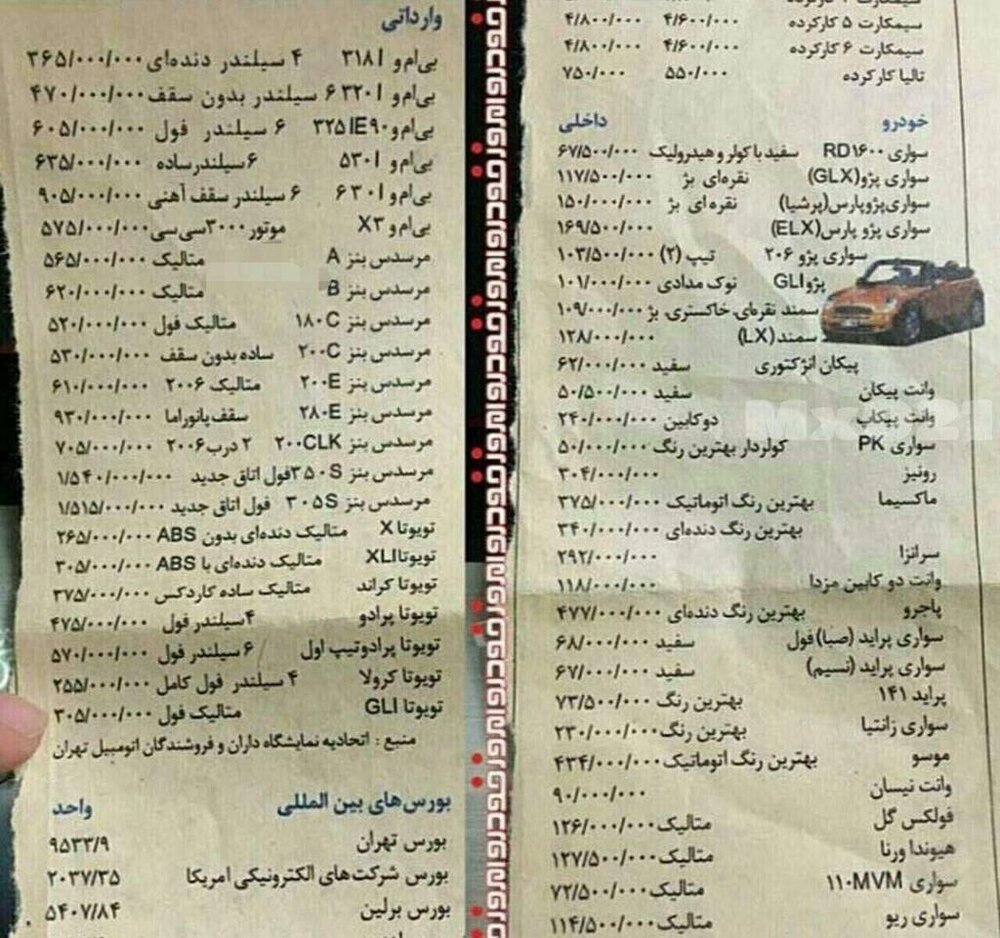 سیمکارت ۵ کارکرده ۴/۶۰۰/۰۰۰ ۴/۸۰۰/۰۰۰
سیمکارت ۶ کارکرده ۴/۶۰۰/۰۰۰ ۴/۸۰۰/۰۰۰
تالیا کارکرده ۵۵۰/۰۰۰ ۷۵۰/۰۰۰
خودرو داخلی
سواری RD۱۶۰۰ سفید با کولر و هیدرولیک ۶۷/۵۰۰/۰۰۰
سواری پژو(GLX) نقره‌ای بژ ۱۱۷/۵۰۰/۰۰۰
سواری پژو پارس(پرشیا) نقره‌ای بژ ۱۵۰/۰۰۰/۰۰۰
سواری پژو پارس(ELX) ۱۶۹/۵۰۰/۰۰۰
سواری پژو ۲۰۶ تیپ (۲) ۱۰۳/۵۰۰/۰۰۰
پژو GLI نوک مدادی ۱۰۱/۰۰۰/۰۰۰
سمند نقره‌ای، خاکستری، بژ ۱۰۹/۰۰۰/۰۰۰
سمند (LX) ۱۲۸/۰۰۰/۰۰۰
پیکان انژکتوری سفید ۶۲/۰۰۰/۰۰۰
وانت پیکان سفید ۵۰/۵۰۰/۰۰۰
وانت پیکاپ دوکابین ۲۴۰/۰۰۰/۰۰۰
سواری PK کولردار بهترین رنگ ۵۰/۰۰۰/۰۰۰
رونیز ۳۰۴/۰۰۰/۰۰۰
ماکسیما بهترین رنگ اتوماتیک ۳۷۵/۰۰۰/۰۰۰
بهترین رنگ دنده‌ای ۳۴۰/۰۰۰/۰۰۰
سرانزا ۲۹۲/۰۰۰/۰۰۰
وانت دو کابین مزدا ۱۱۸/۰۰۰/۰۰۰
پاجرو بهترین رنگ دنده‌ای ۴۷۷/۰۰۰/۰۰۰
سواری پراید (صبا) فول سفید ۶۸/۰۰۰/۰۰۰
سواری پراید (نسیم) سفید ۶۷/۰۰۰/۰۰۰
پراید ۱۴۱ بهترین رنگ ۷۳/۵۰۰/۰۰۰
سواری زانتیا بهترین رنگ ۲۳۰/۰۰۰/۰۰۰
موسو بهترین رنگ اتوماتیک ۴۳۴/۰۰۰/۰۰۰
وانت نیسان ۹۰/۰۰۰/۰۰۰
فولکس گل متالیک ۱۲۶/۰۰۰/۰۰۰
هیوندا ورنا متالیک ۱۲۷/۵۰۰/۰۰۰
سواری ۱۱۰MVM متالیک ۷۲/۵۰۰/۰۰۰
سواری ریو متالیک ۱۱۴/۵۰۰/۰۰۰
وارداتی
بی‌ام‌و ۳۱۸I ۴ سیلندر دنده‌ای ۳۶۵/۰۰۰/۰۰۰
بی‌ام‌و ۳۲۰I ۶ سیلندر بدون سقف ۴۷۰/۰۰۰/۰۰۰
بی‌ام‌و ۳۲۵IE۹۰ ۶ سیلندر فول ۶۰۵/۰۰۰/۰۰۰
بی‌ام‌و ۵۳۰I ۶ سیلندر ساده ۶۳۵/۰۰۰/۰۰۰
بی‌ام‌و ۶۳۰I ۶ سیلندر سقف آهنی ۹۰۵/۰۰۰/۰۰۰
بی‌ام‌و X۳ موتور ۳۰۰۰ سی‌سی ۵۷۵/۰۰۰/۰۰۰
مرسدس بنز A متالیک ۵۶۵/۰۰۰/۰۰۰
مرسدس بنز B متالیک ۶۲۰/۰۰۰/۰۰۰
مرسدس بنز ۱۸۰C متالیک فول ۵۲۰/۰۰۰/۰۰۰
مرسدس بنز ۲۰۰C ساده بدون سقف ۵۳۰/۰۰۰/۰۰۰
مرسدس بنز ۲۰۰E متالیک ۲۰۰۶ ۶۱۰/۰۰۰/۰۰۰
مرسدس بنز ۲۸۰E سقف پانوراما ۹۳۰/۰۰۰/۰۰۰
مرسدس بنز ۲۰۰CLK ۲ درب ۲۰۰۶ ۷۰۵/۰۰۰/۰۰۰
مرسدس بنز ۳۵۰S فول اتاق جدید ۱/۵۴۰/۰۰۰/۰۰۰
مرسدس بنز ۳۰۵S فول اتاق جدید ۱/۵۱۵/۰۰۰/۰۰۰
تویوتا X متالیک دنده‌ای بدون ABS ۲۶۵/۰۰۰/۰۰۰
تویوتا XLI متالیک دنده‌ای با ABS ۳۰۵/۰۰۰/۰۰۰
تویوتا کراند متالیک ساده کاردکس ۳۷۵/۰۰۰/۰۰۰
تویوتا پرادو ۴ سیلندر فول ۴۷۵/۰۰۰/۰۰۰
تویوتا پرادوتیپ اول ۶ سیلندر فول ۵۷۰/۰۰۰/۰۰۰
تویوتا کرولا ۴ سیلندر فول کامل ۲۵۵/۰۰۰/۰۰۰
تویوتا GLI متالیک فول ۳۰۵/۰۰۰/۰۰۰
منبع : اتحادیه نمایشگاه داران و فروشندگان اتومبیل تهران
بورس‌های بین المللی واحد
بورس تهران ۹۵۳۳/۹
بورس شرکت‌های الکترونیکی امریکا ۲۰۳۷/۳۵
بورس برلین ۵۴۰۷/۸۴